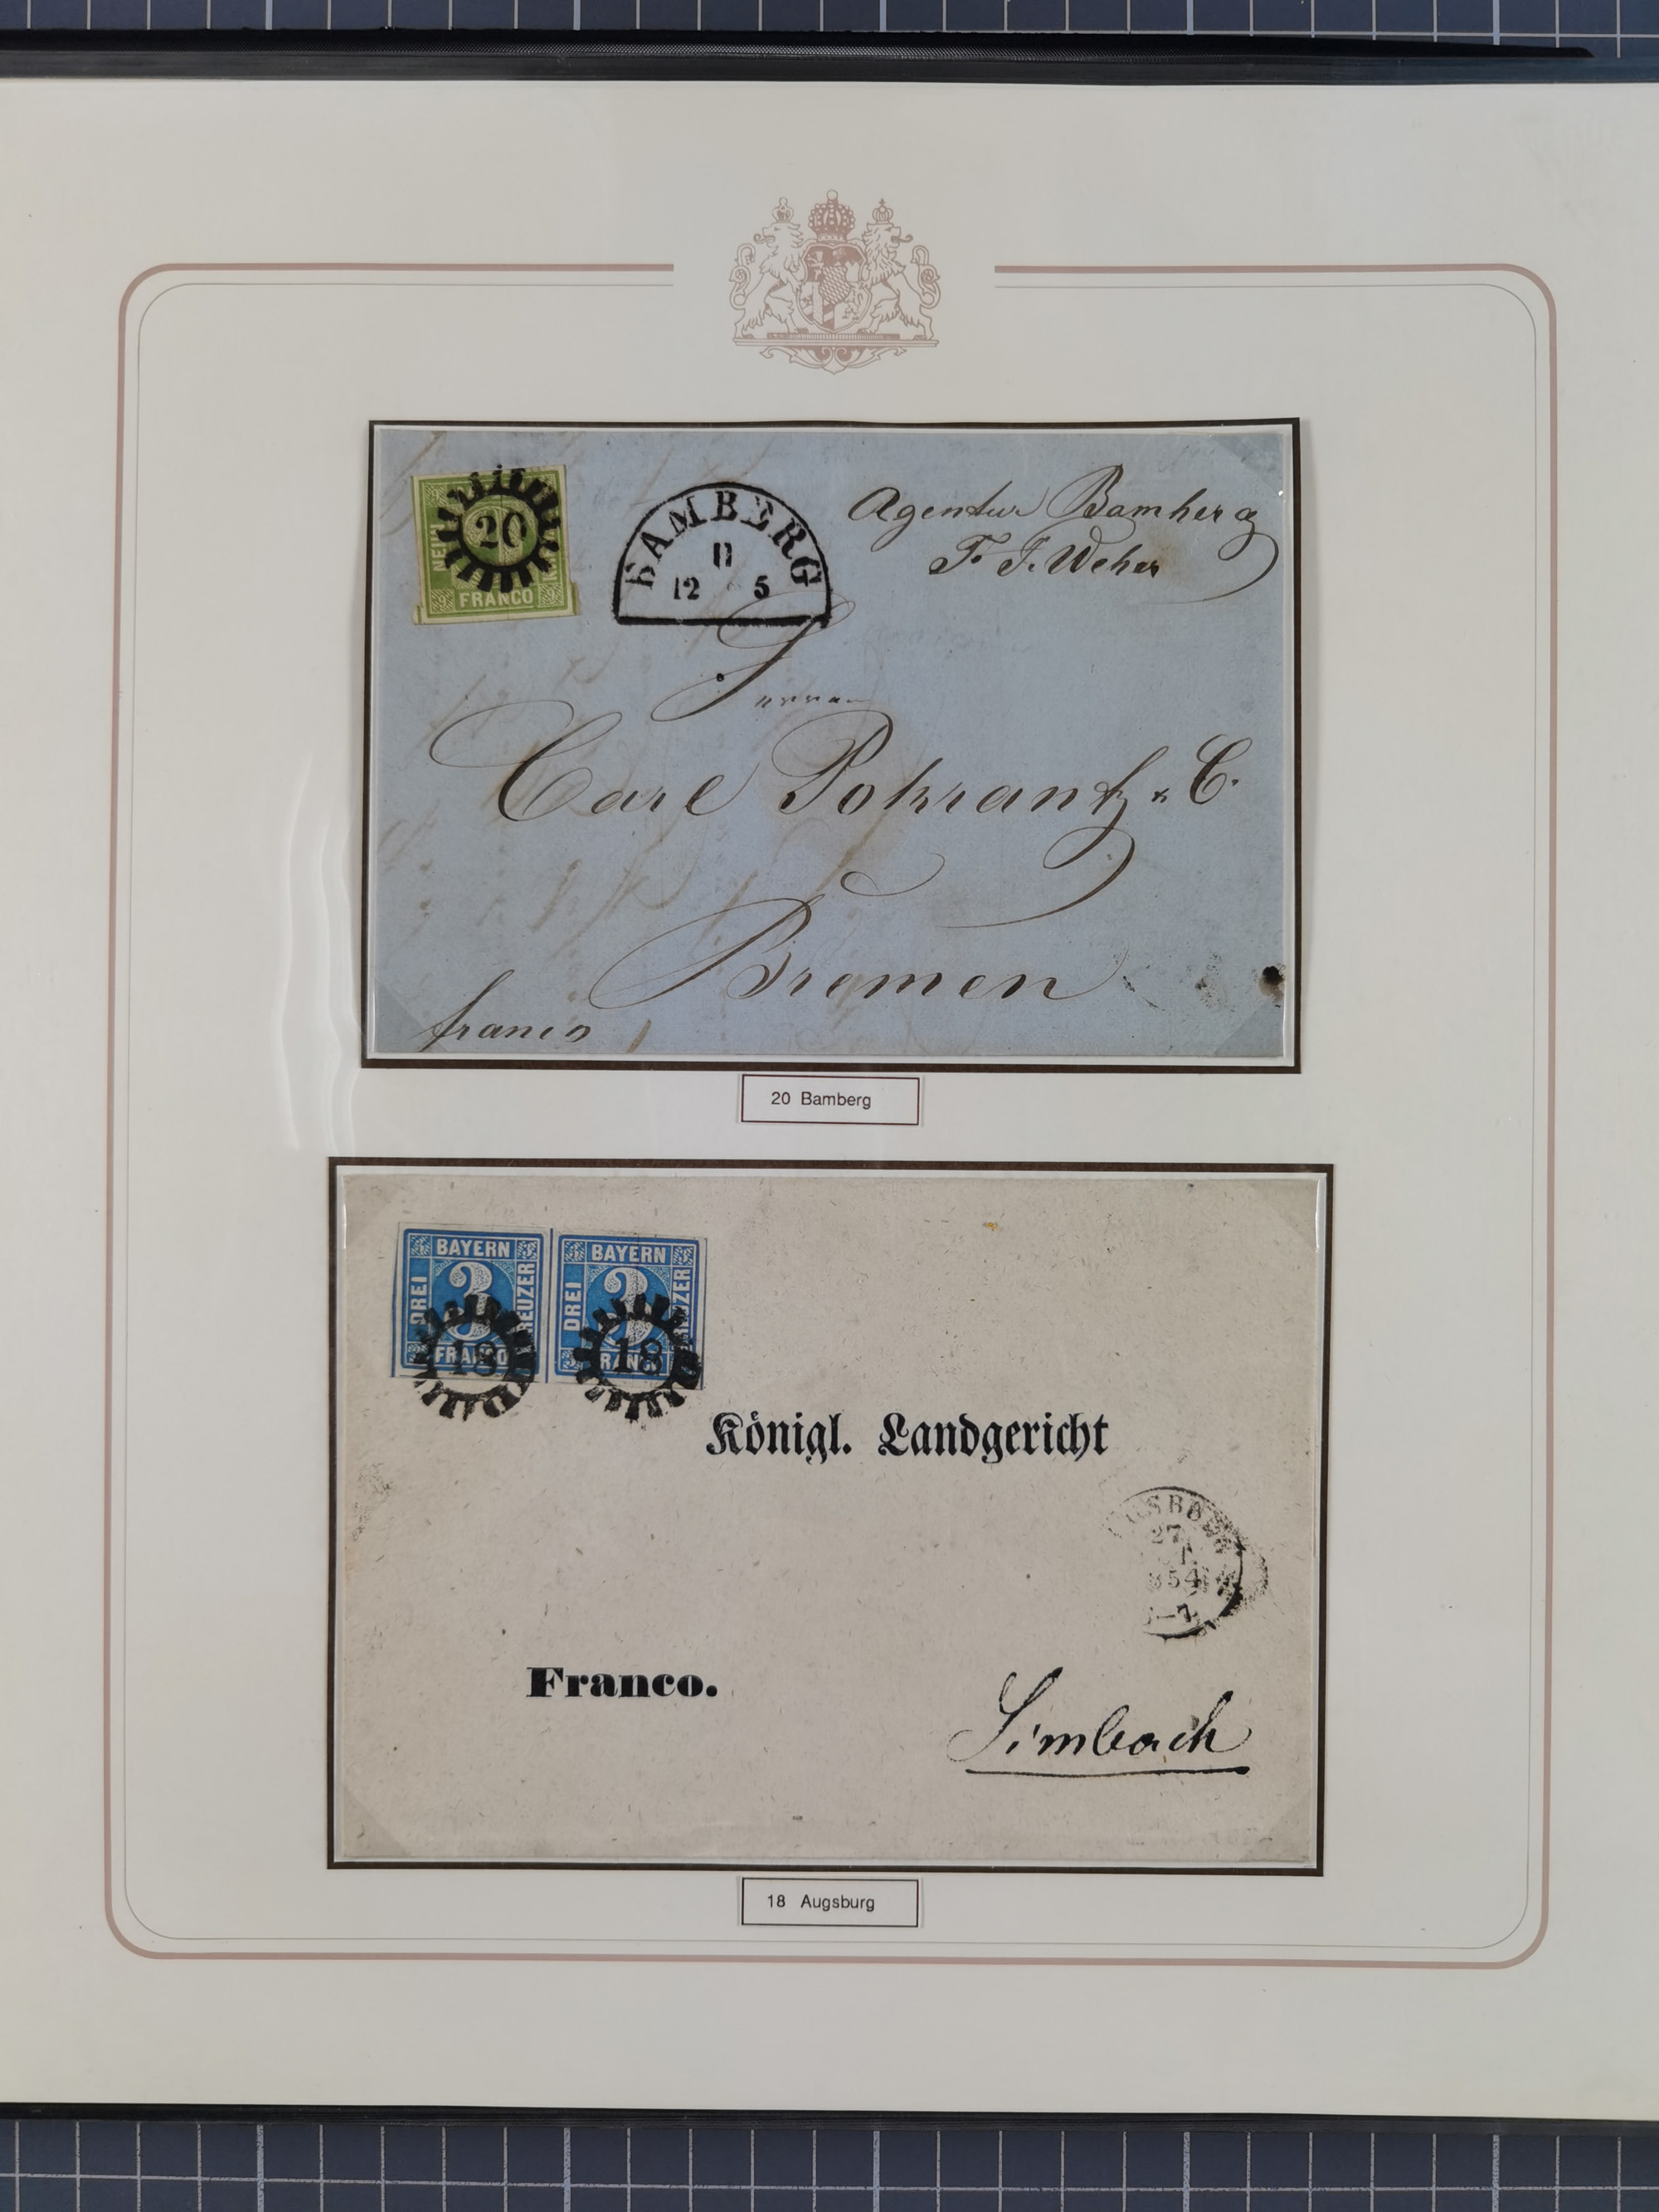 NEUN
20
9
FRANCO
9
BAMBERG
11
12 5
Agentur Bamberg
F. J. Weber
Herren
Carl Pokrantz & C.
Bremen
franco
20 Bamberg
BAYERN
DREI
3
KREUZER
FRANCO
18
BAYERN
DREI
3
KREUZER
FRANCO
18
Königl. Landgericht
AUGSBURG
27
1854
Franco.
Simbach
18 Augsburg